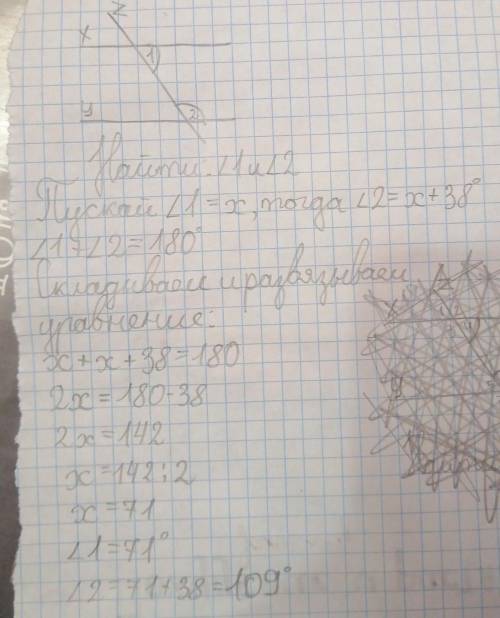 z
x
1
y
2
Найти: ∠1 и ∠2
Пускай ∠1 = x, тогда ∠2 = x + 38°
∠1 + ∠2 = 180°
Складываем и развязываем
уравнение:
x + x + 38 = 180
2x = 180 - 38
2x = 142
x = 142 : 2
x = 71
∠1 = 71°
∠2 = 71 + 38 = 109°